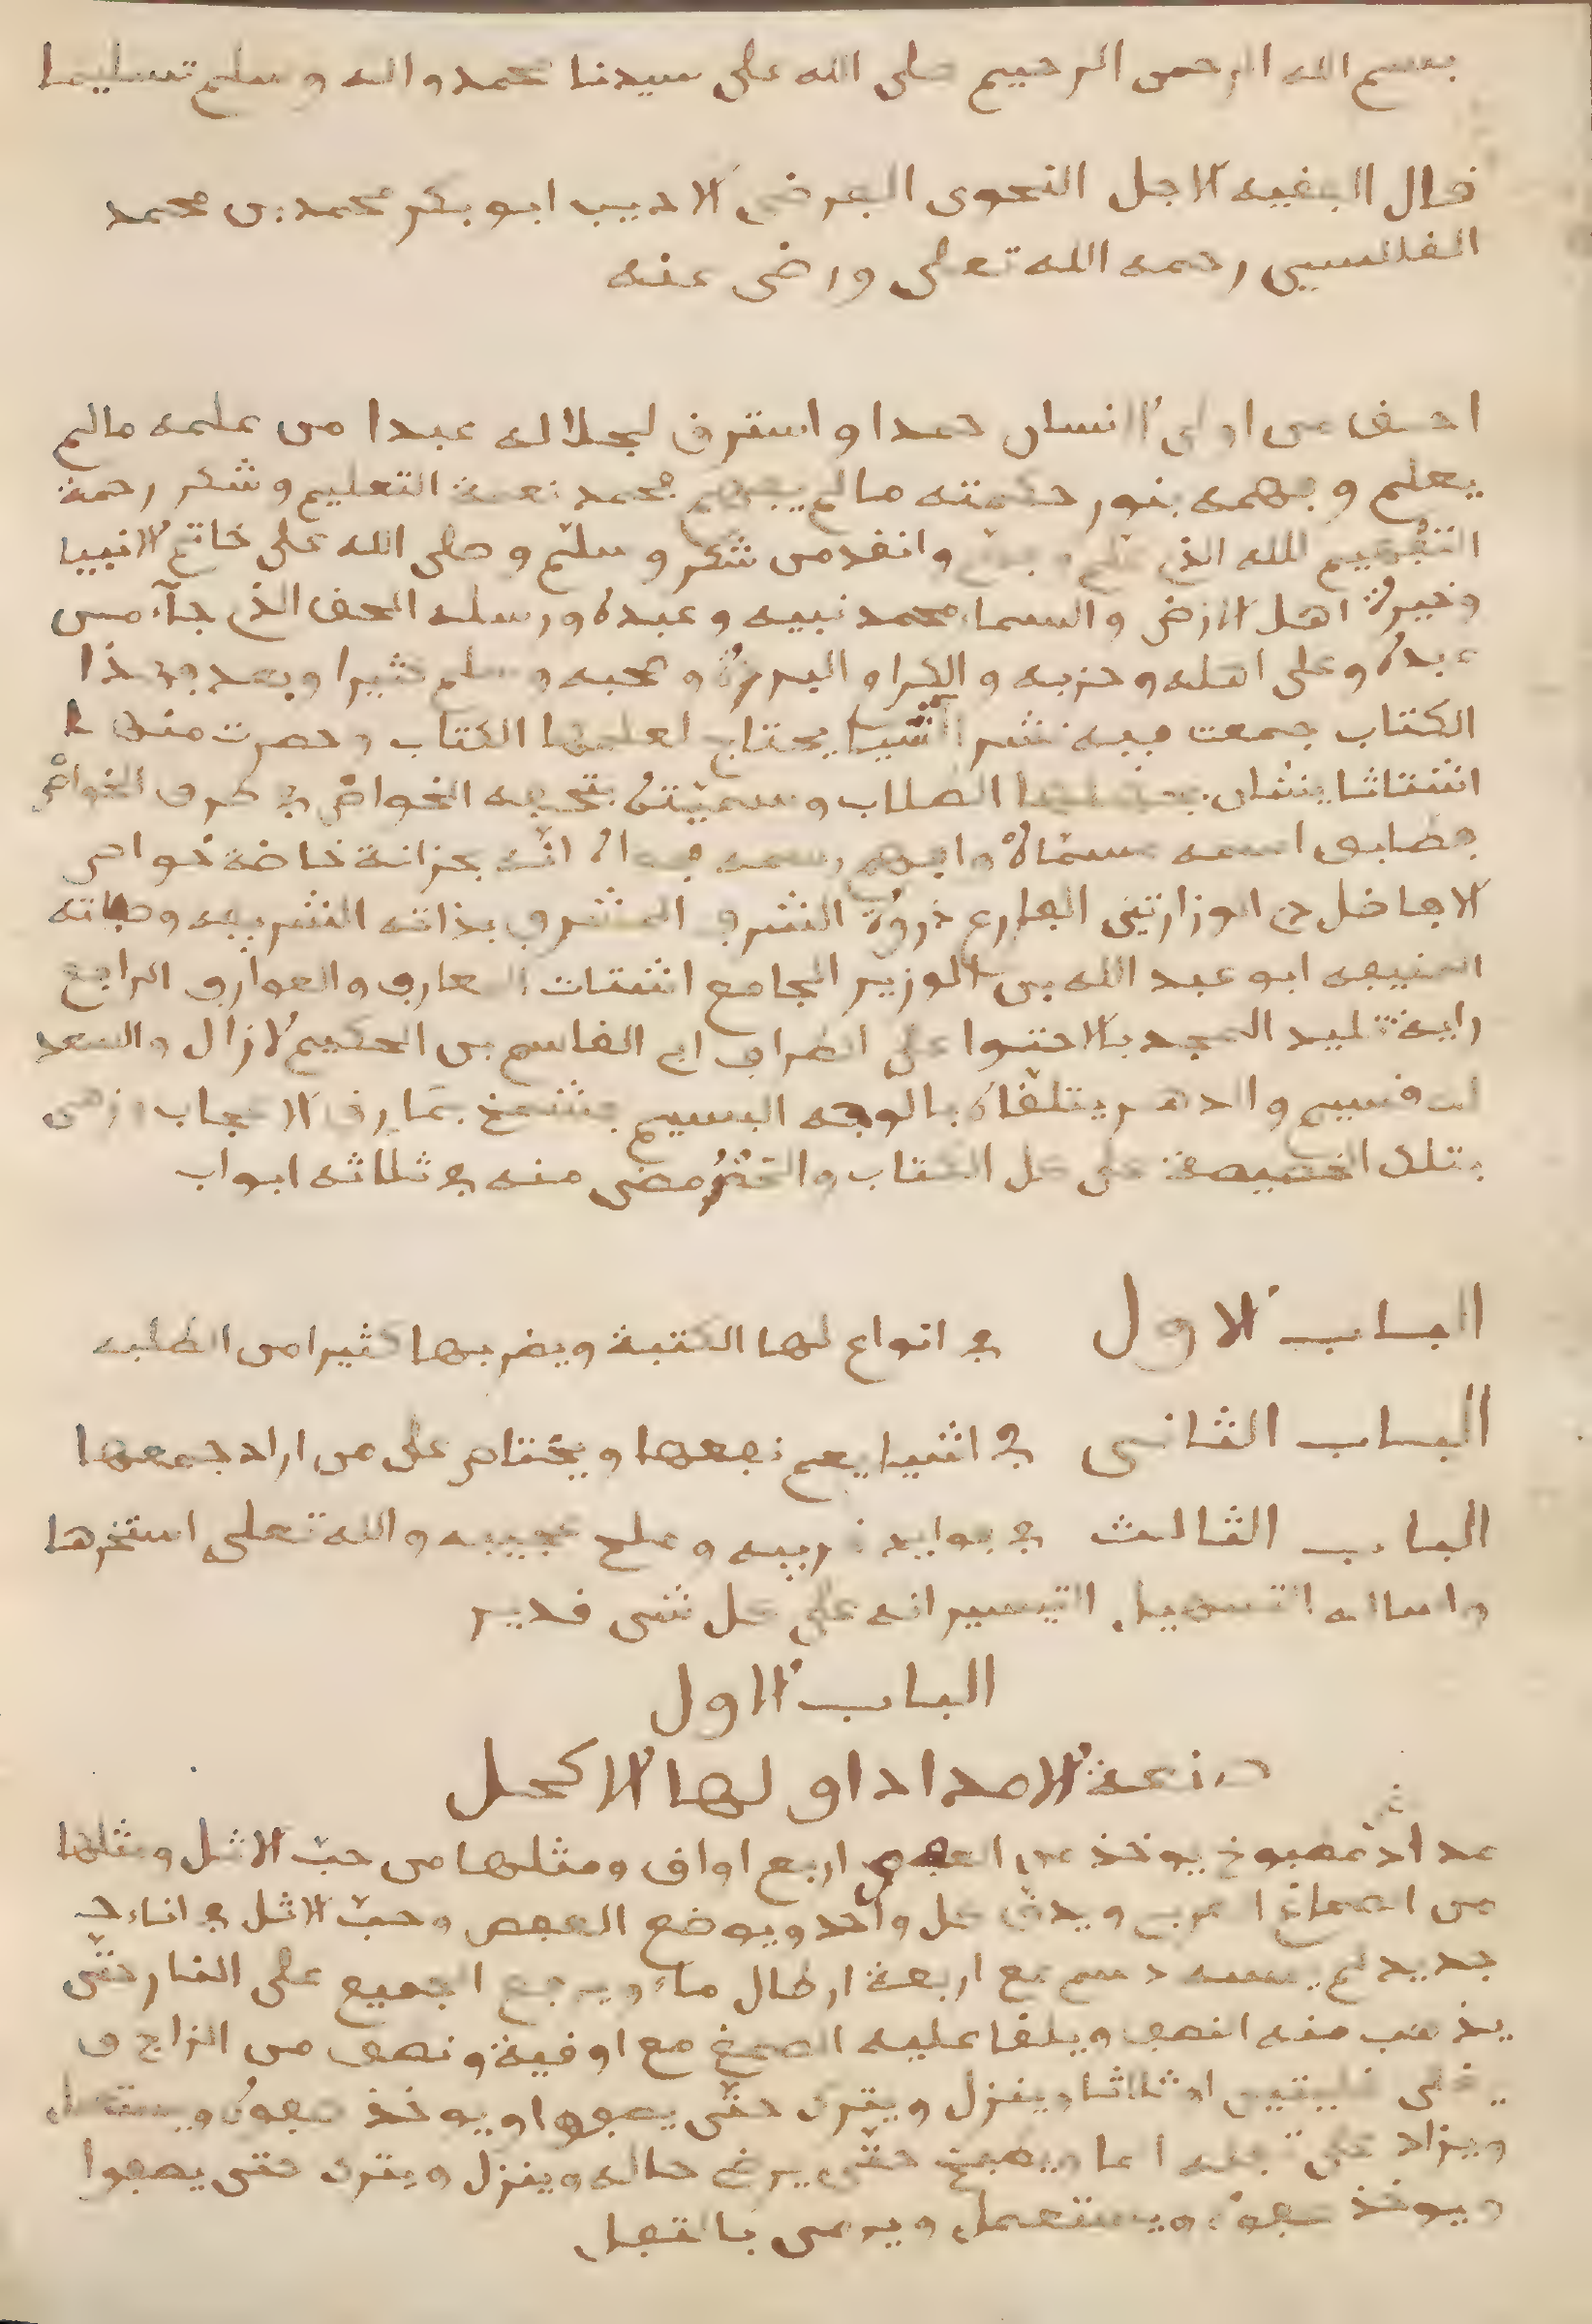 بسم الله الرحمن الرحيم صلى الله على سيدنا محمد واله وسلم تسليما
قال الفقيه الاجل النحوى الفرضى الاديب ابو بكر محمد بن محمد
القللسى رحمه الله تعلى ورضى عنه
احق من اولى الانسان حمدا واسترق لجلاله عبدا من علمه مالم
يعلم وفهمه بنور حكمته مالم يفهم فحمد نعمة التعليم وشكر رحمة
التفهيم لله الذى وانقد من شكر وسلم وصلى الله على خاتم الانبيا
وخيرة اهل الارض والسماء محمد نبيه وعبده ورسله الحق الذى جآء من
عبده وعلى اهله وحزبه والكرام البررة وصحبه وسلم كثيرا وبعد فهذا
الكتاب جمعت فيه نشر اشيا يحتاج لعلمها الكتاب وحصرت منها
اشتاتا ينشان بحفظها الطلاب وسميته بتحفه الخواص في طرف الخواص
فطابق اسمه مسماه ووافق رسمه انه بخزانة خاصة خواص
الافاضل ذي الوزارتين الفارع ذروة الشرف المشرف بذاته الشريفه وصفاته
المنيفه ابو عبد الله بن الوزير الجامع اشتات المعارف والعوارف الرافع
راية تليد المجد بالاحتوا على اطراف ابي القاسم بن الحكيم لازال والسعد
له قسيم والدهر يتلقاه بالوجه البسيم فشمخ بمارق الاعجاب وزهى
بتلك الخصيصة على كل الكتاب والغرض منه في ثلاثه ابواب
الباب الاول في انواع لها الكتبة ويضر بها كثيرا من الطلبه
الباب الثانى في اشيا يعم نفعها ويختاص على من اراد جمعها
الباب الثالث في فوايد غريبه وملح عجيبه والله تعلى استخرها
واساله التسهيل التيسير انه على كل شى قدير
الباب الاول
صنعة الامداد اولها الاكحل
مداد مطبوخ يوخذ من العفص اربع اواق ومثلها من حب الاثل ومثلها
من الصمغ العربى ويدق كل واحد ويوضع العفص وحب الاثل في اناء
جديد لم يمسه دسم مع اربعة ارطال ماء ويرفع الجميع على النار حتى
يذهب منه النصف ويلقا عليه الصمغ مع اوقية ونصف من الزاج و
يغلى غليتين او ثلاثا وينزل ويترك حتى يصفوا ويوخذ صفوه ويستعمل
ويزاد على ثفله الما ويطبخ حتى يرضى حاله وينزل ويترك حتى يصفوا
ويوخذ صفوه ويستعمل ويرمى بالثفل